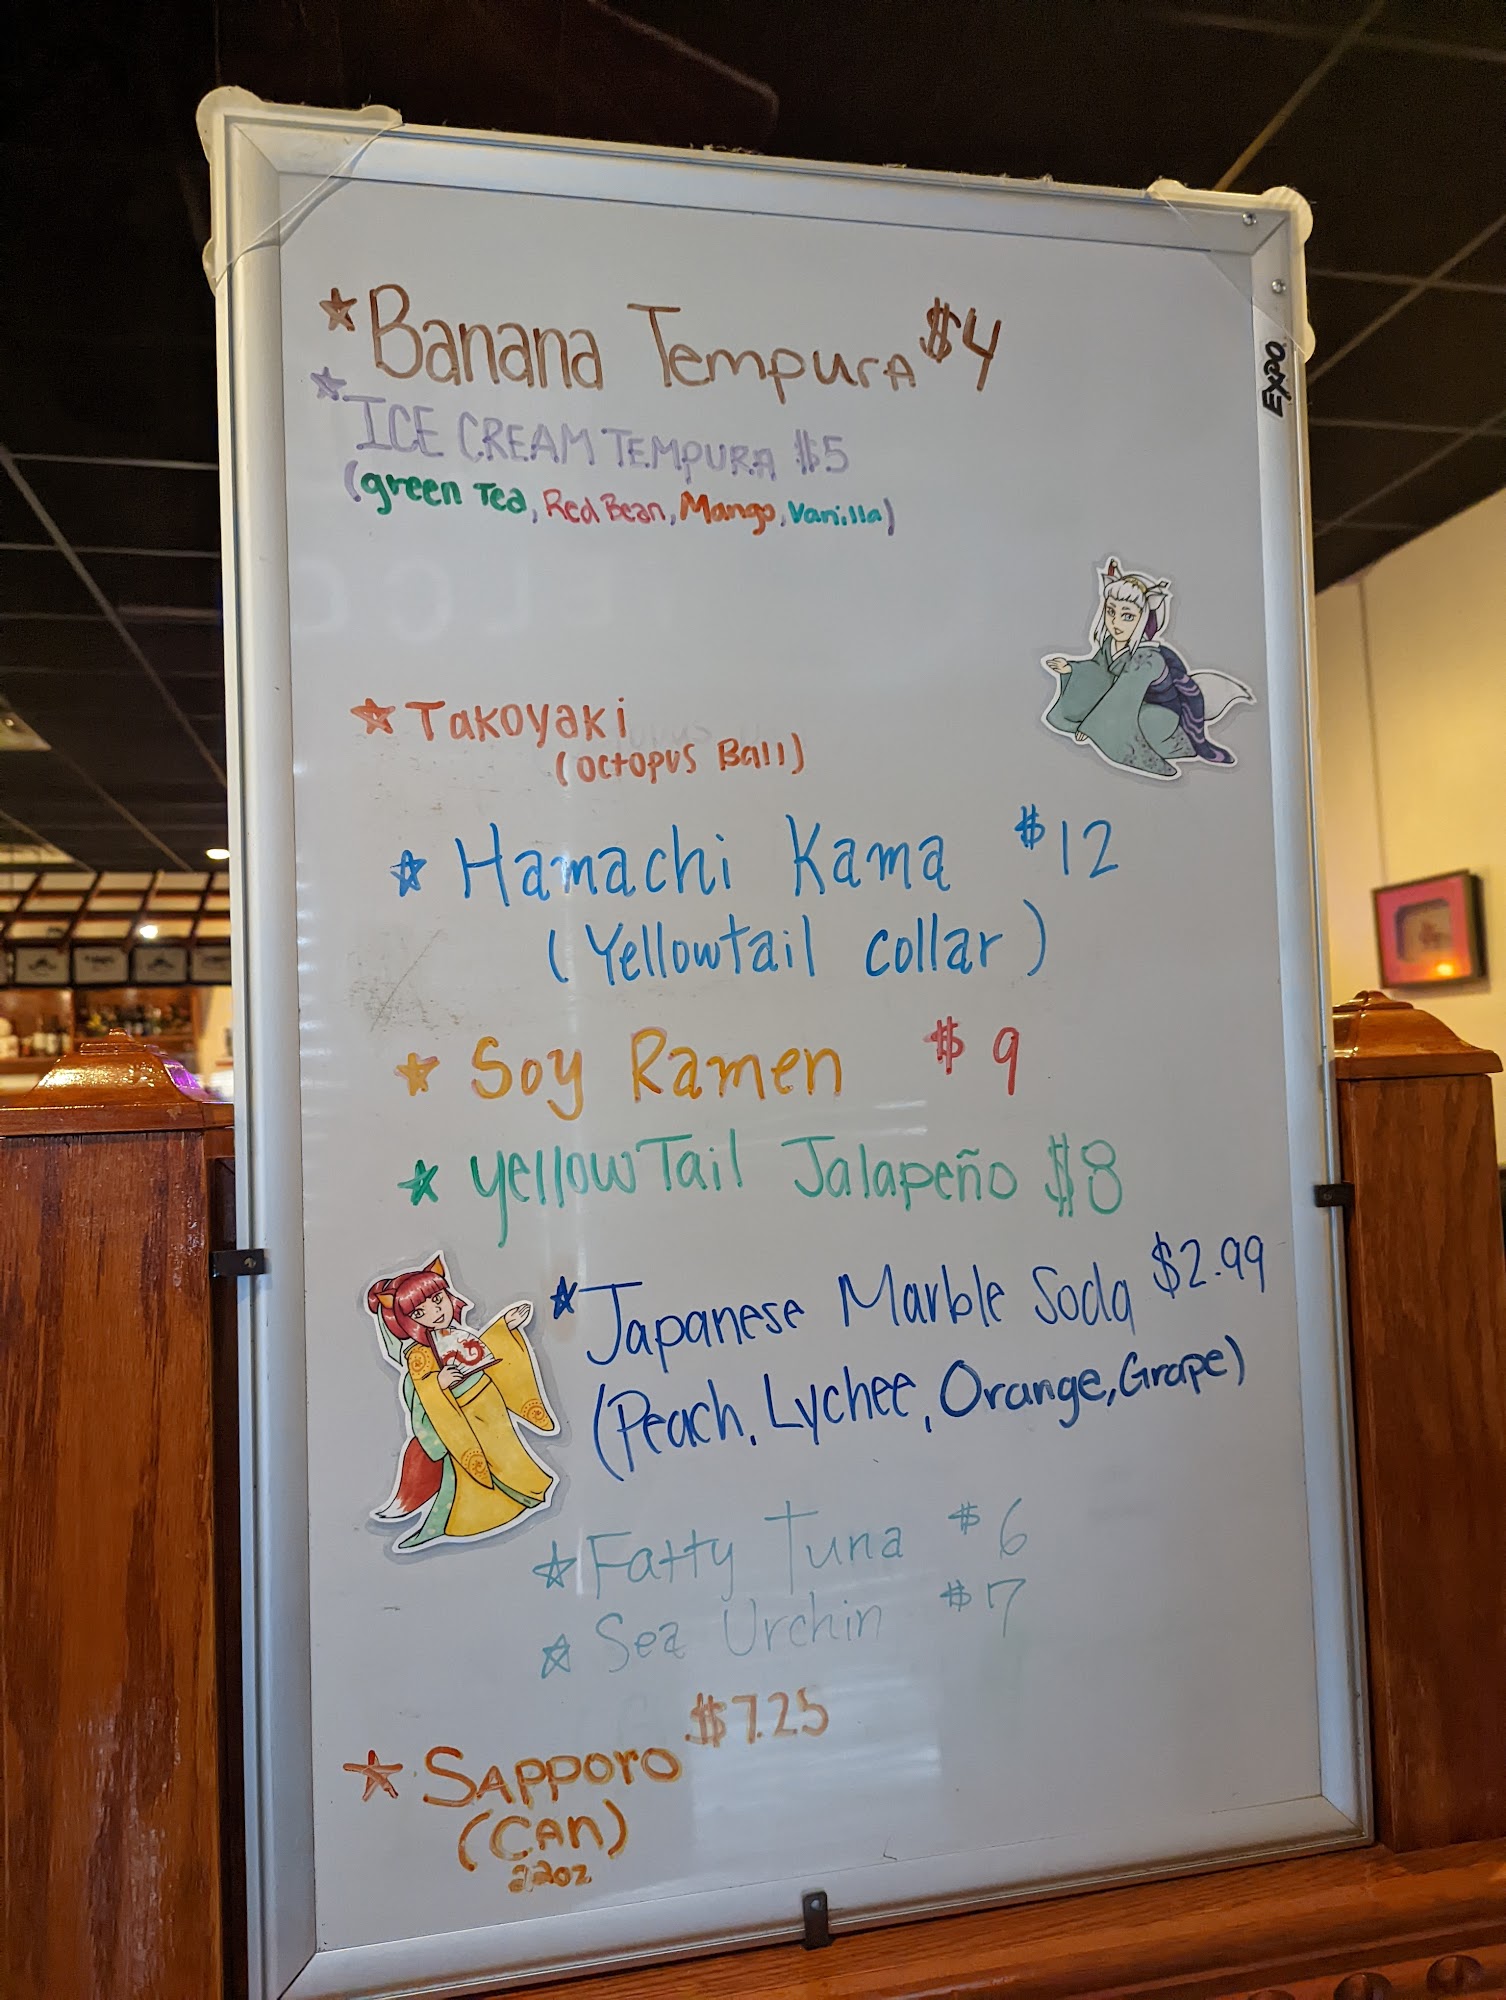 ★ Banana Tempura $4
★ ICE CREAM TEMPURA $5
(green Tea, Red Bean, Mango, Vanilla)
EXPO
★ Takoyaki
(octopus Ball)
★ Hamachi Kama $12
(Yellowtail collar)
★ Soy Ramen $9
★ yellowTail Jalapeño $8
★ Japanese Marble Soda $2.99
(Peach, Lychee, Orange, Grape)
★ Fatty Tuna $6
★ Sea Urchin $7
★ Sapporo $7.25
(CAN)
22oz